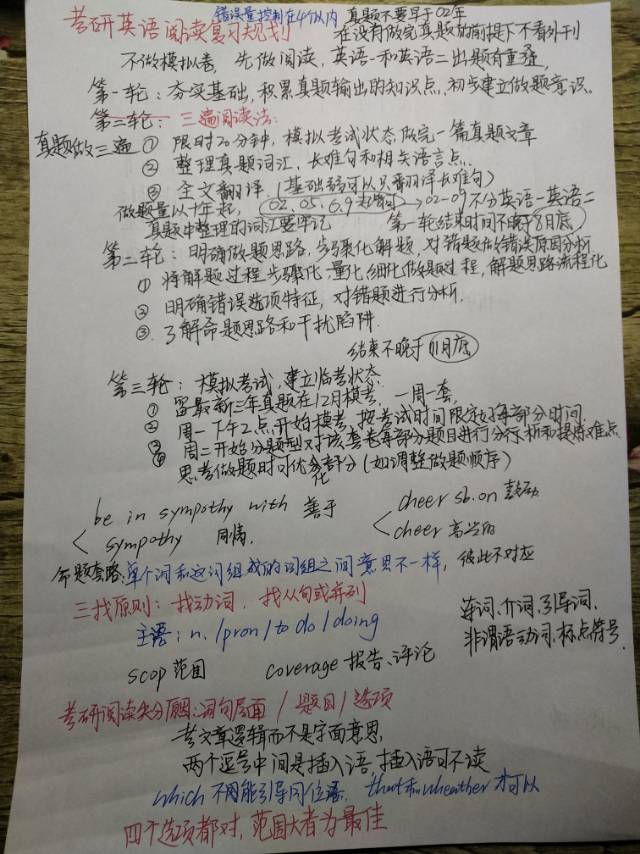 错误量控制在4个以内 真题不要早于02年
考研英语阅读复习规划 在没有做完真题的前提下不看外刊
不做模拟卷，先做阅读，英语一和英语二出题有重叠，
第一轮：夯实基础，积累真题输出的知识点，初步建立做题意识。
第二轮：三遍阅读法：
真题做三遍 ① 限时20分钟，模拟考试状态做完一篇真题文章
② 整理真题词汇、长难句和相关语言点.
③ 全文翻译（基础弱可以只翻译长难句）
做题量以十年起，(02.05、6.9 ) → 02-09不分英语一英语二
真题中整理的词汇要牢记 第一轮结束时间不晚于8月底，
第二轮：明确做题思路，步骤化解题，对错题的错误原因分析
① 将解题过程步骤化 量化 细化做题过程，解题思路流程化
② 明确错误选项特征，对错题进行分析.
③. 了解命题思路和干扰陷阱.
结束不晚于11月底
第三轮：模拟考试，建立临考状态.
① 留最新三年真题在12月模考. 一周一套，
② 周一下午2点开始模考，按考试时间限定好每部分时间.
③ 周二开始分题型对该套卷每部分题目进行分析和提炼难点.
④ 思考做题时可优化部分（如调整做题顺序）
be in sympathy with 善于 cheer sb. on 鼓动
< sympathy 同情. < cheer 高兴的
命题套路：单个词和这词组成的词组之间意思不一样，彼此不对应
三找原则：找动词、找从句或并列 连词、介词、引导词、
主语：n. / pron / to do / doing 非谓语动词、标点符号.
scop 范围 coverage 报告、评论
考研阅读失分原因：词句层面 / 题目 / 选项
考文章逻辑而不是字面意思，
两个逗号中间是插入语，插入语可不读
which 不能引导同位语、that和wheather才可以
四个选项都对，范围大者为最佳